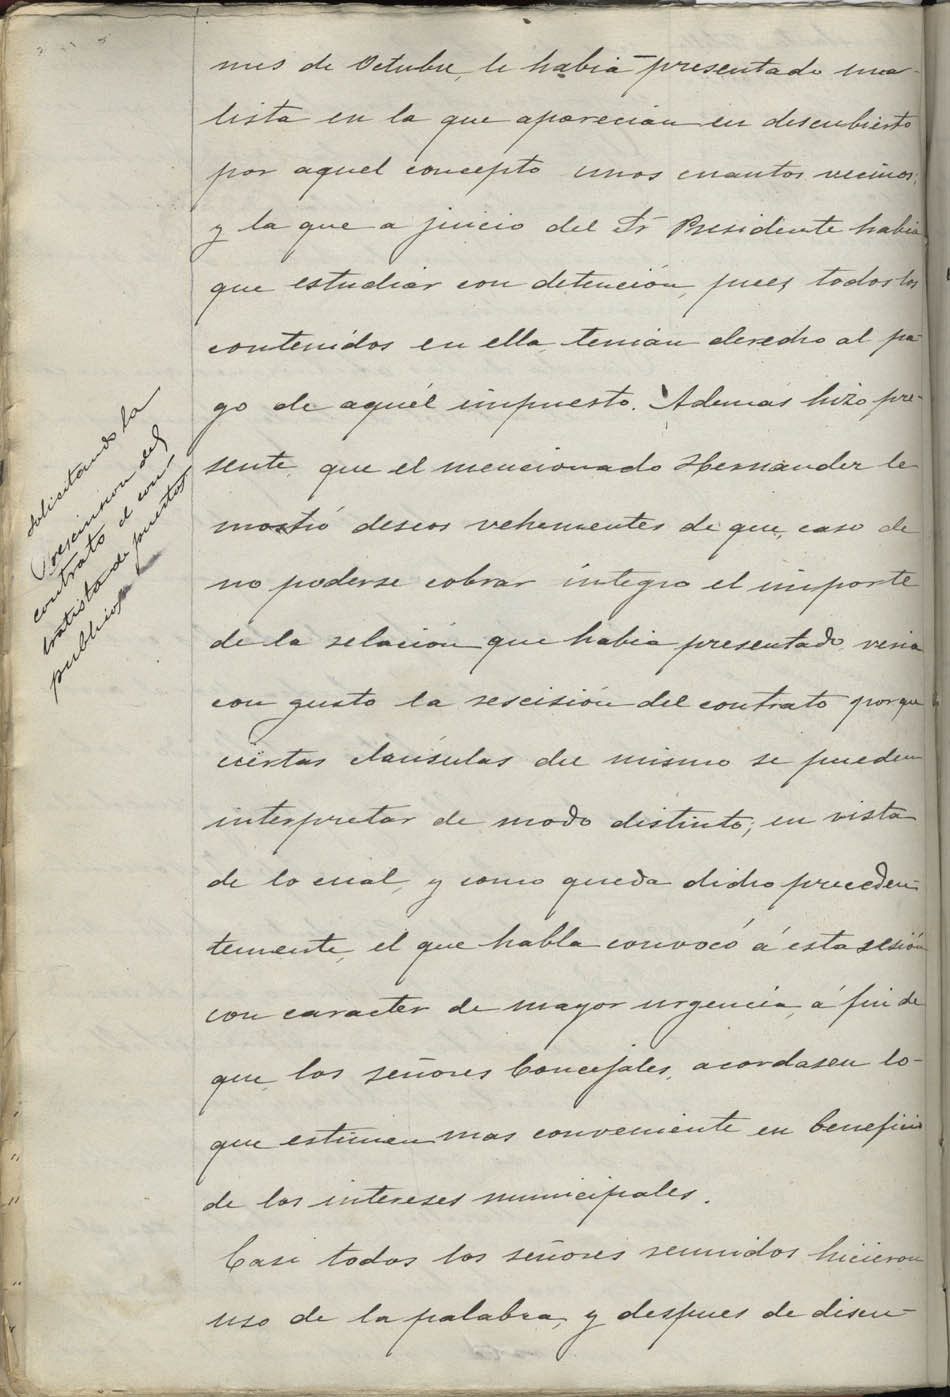 solicitando la
rescision del
contrato el con-
tratista de puestos
publicos
mes de Octubre, le habia presentado una
lista en la que aparecian en descubierto
por aquel concepto unos cuantos vecinos,
y la que a juicio del Sr Presidente habia
que estudiar con detención, pues todos los
contenidos en ella, tenian derecho al pa-
go de aquél impuesto. Además hizo pre-
sente, que el mencionado Hernander le
mostró deseos vehementes de que, caso de
no poderse cobrar íntegro el importe
de la relación que habia presentado, veria
con gusto la rescisión del contrato porque
ciertas claúsulas del mismo se pueden
interpretar de modo distinto; en vista
de lo cual, y como queda dicho preceden-
temente, el que habla convocó á esta sesión
con caracter de mayor urgencia, á fin de
que, los señores Concejales, acordasen lo
que estimen mas conveniente en beneficio
de los intereses municipales.
Casi todos los señores reunidos hicieron
uso de la palabra, y despues de discu-